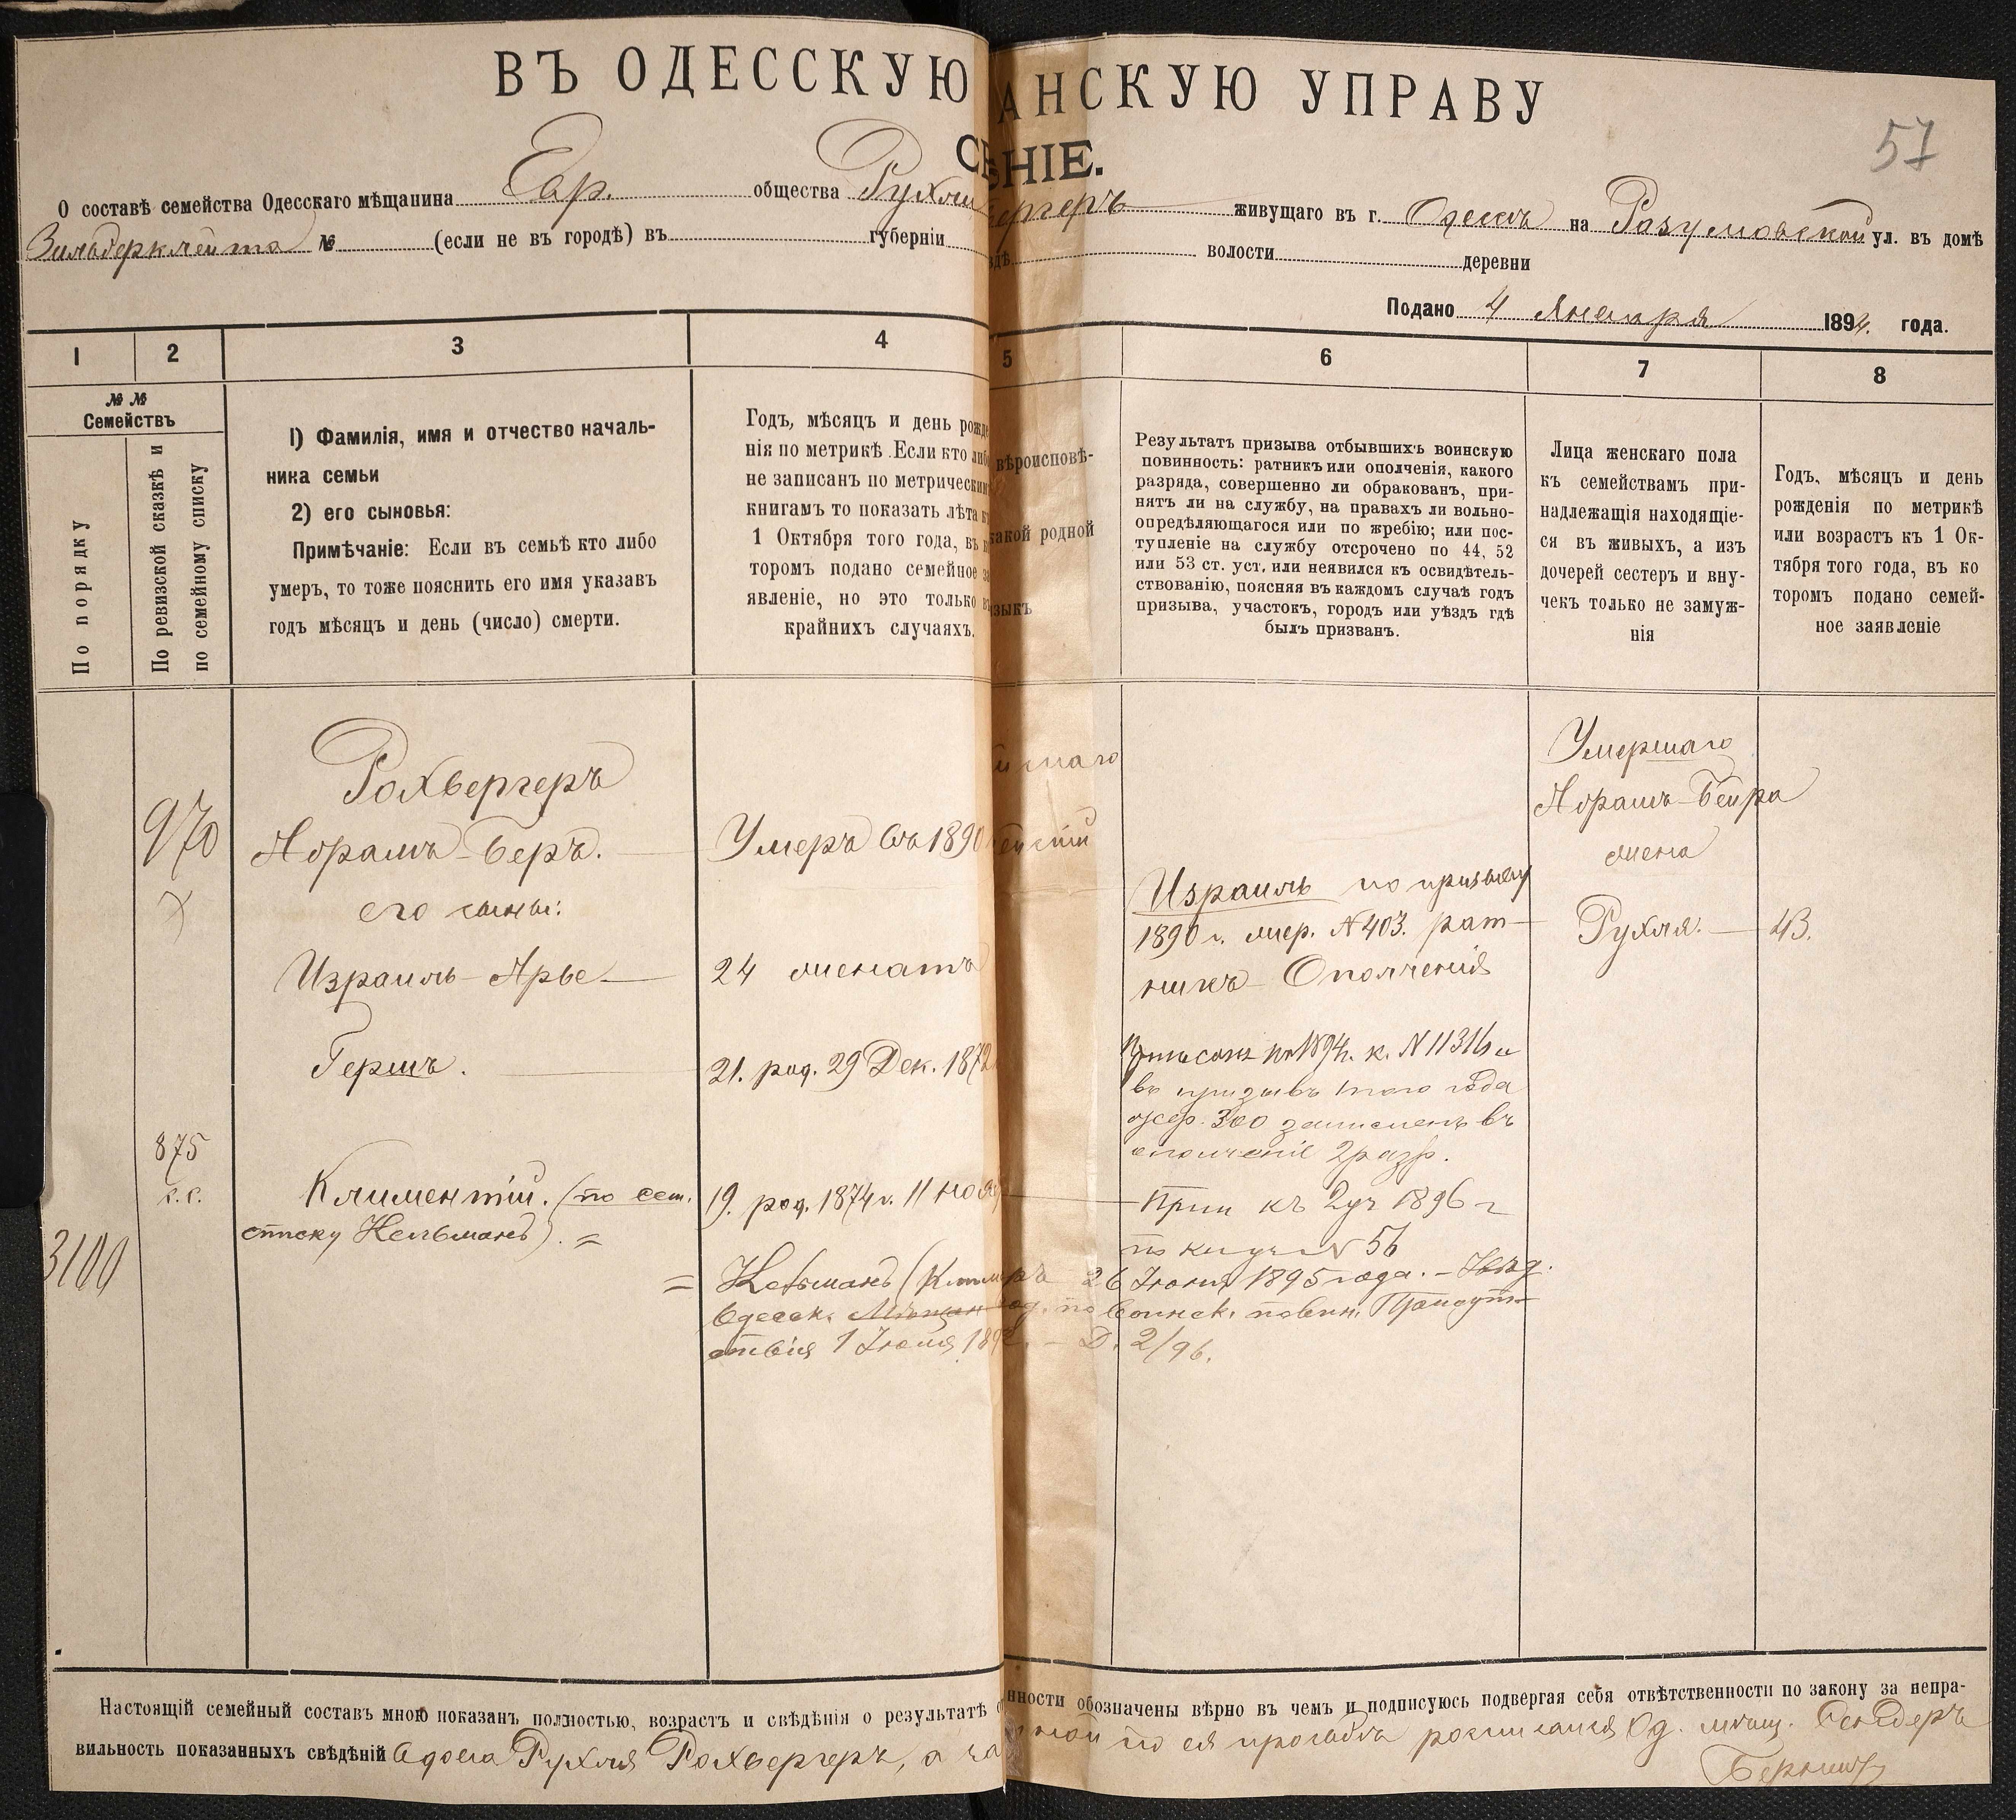 ВЪ ОДЕССКУЮ АНСКУЮ УПРАВУ
57
НІЕ.
О составѣ семейства Одесскаго мѣщанина Евр. общества Рухли бергеръ живущаго въ г. Одессѣ на Разумовской ул. въ домѣ
Зильберклейта № (если не въ городѣ) въ губерніи здѣ волости деревни
Подано 4 Января 1894. года.
1 2 3 4 5 6 7 8
№ №
Семействъ
По порядку
По ревизской сказкѣ и
по семейному списку
1) Фамилія, имя и отчество началь-
ника семьи
2) его сыновья:
Примѣчаніе: Если въ семьѣ кто либо
умеръ, то тоже пояснить его имя указавъ
годъ мѣсяцъ и день (число) смерти.
Годъ, мѣсяцъ и день рожде
нія по метрикѣ. Если кто либ
не записанъ по метрическим
книгамъ то показать лѣта к
1 Октября того года, въ к
торомъ подано семейное за
явленіе, но это только въ
крайнихъ случаяхъ.
вѣроисповѣ-
какой родной
зыкъ
Результатъ призыва отбывшихъ воинскую
повинность: ратникъ или ополченія, какого
разряда, совершенно ли обракованъ, при-
нятъ ли на службу, на правахъ ли вольно-
опредѣляющагося или по жребію; или пос-
тупленіе на службу отсрочено по 44, 52
или 53 ст. уст. или неявился къ освидѣтель-
ствованію, поясняя въ каждомъ случаѣ годъ
призыва, участокъ, городъ или уѣздъ гдѣ
былъ призванъ.
Лица женскаго пола
къ семействамъ при-
надлежащія находящіе-
ся въ живыхъ, а изъ
дочерей сестеръ и вну-
чекъ только не замуж-
нія
Годъ, мѣсяцъ и день
рожденія по метрикѣ
или возрастъ къ 1 Ок-
тября того года, въ ко
торомъ подано семей-
ное заявленіе
970
Рохбергеръ
Абрамъ-Беръ.
его сыны:
Израиль-Арье
Гершъ.
875
с.с.
Климентій. (по сем.
списку Кельманъ). =
3100
Умеръ въ 1890
24 женатъ
21. род. 29 Дек. 1872
19. род. 1874 г. 11 нояб
Израиль по призыву
1890 г. жер. №403. рат-
никъ Ополченія
по 1894 г. к. №11316 и
въ призывъ того года
жер. 300 зачисленъ въ
ополченіе 2 разр.
Прип къ 2 уч 1896 г
по книгѣ № 56
= Кельманъ ( 26 Іюня 1895 года. –
Одесск. по Воинск. повин. Присут-
ствія 1 Іюля 189 . – Д. 2/96.
Умершаго
Абрамъ-Бейра
жена
Рухля. — 43.
Настоящій семейный составъ мною показанъ полностью, возрастъ и свѣдѣнія о результатѣ нности обозначены вѣрно въ чемъ и подписуюсь подвергая себя отвѣтственности по закону за непра-
вильность показанныхъ свѣдѣній Вдова Рухля Рохбергеръ, а за по ея просьбѣ росписался Од. мѣщ. Сендеръ